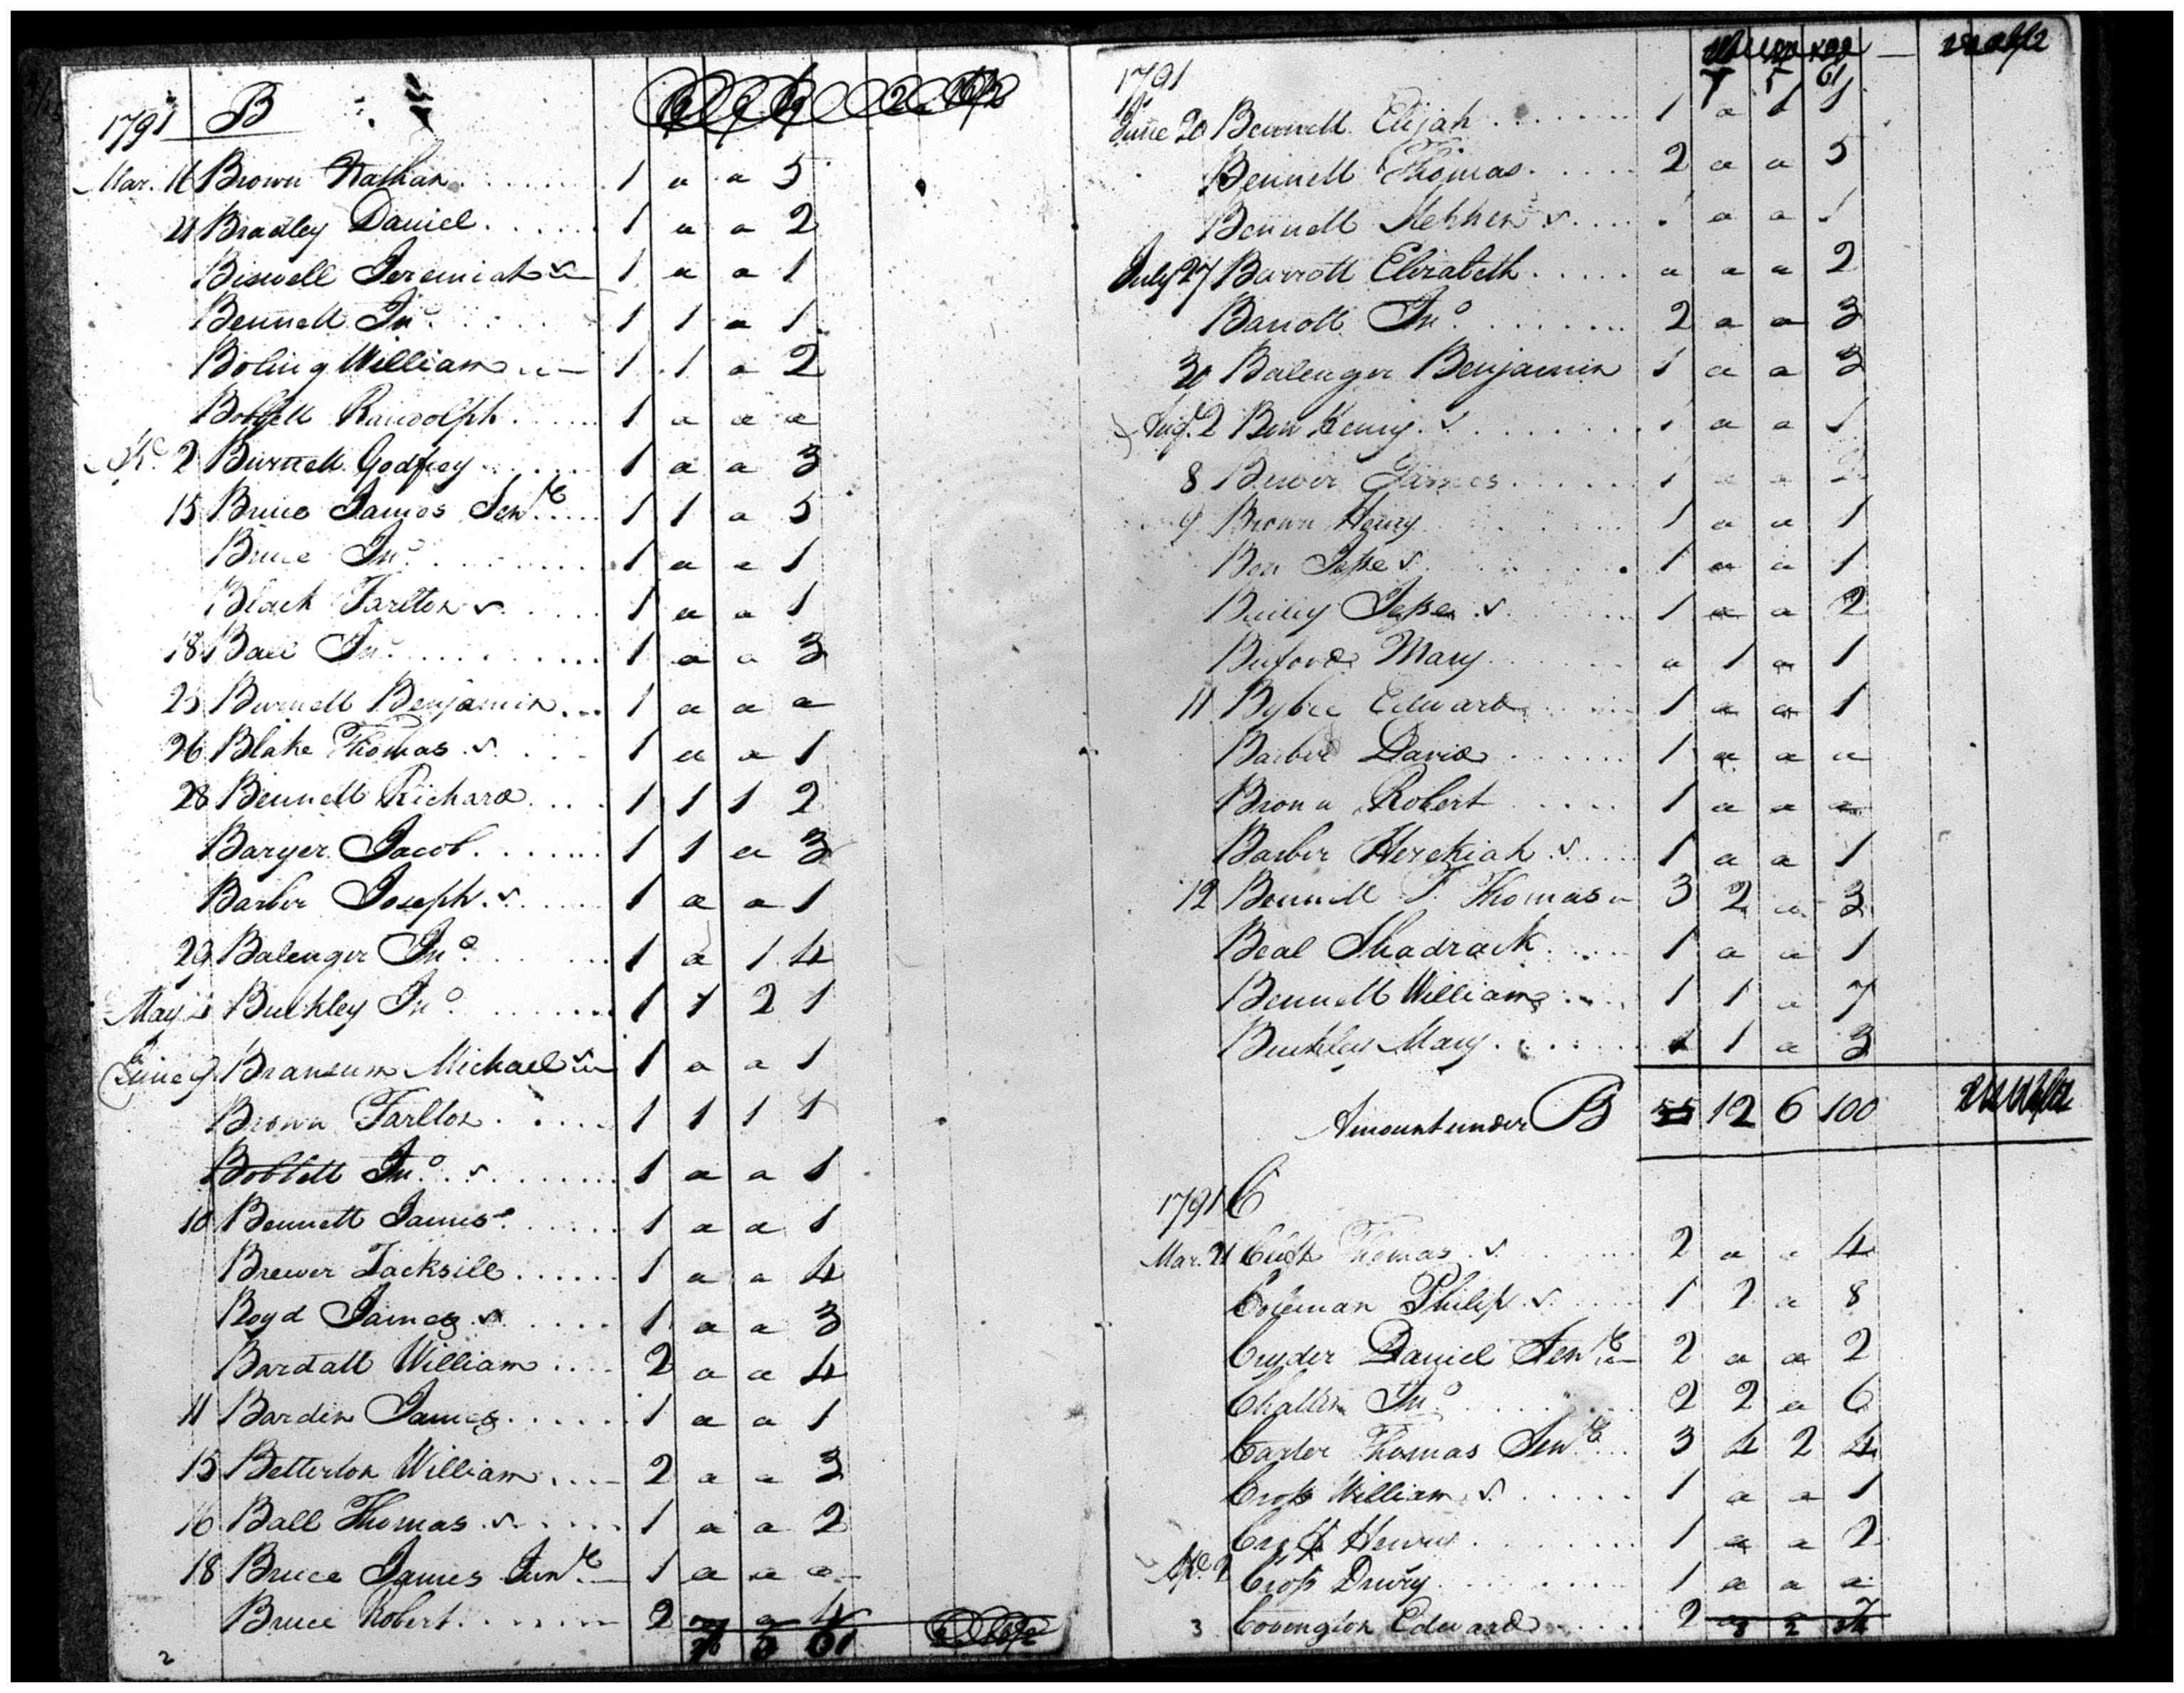 1791 B
Mar. 16 Brown Nathan 1 a a 5
21 Bradley Daniel 1 a a 2
Biswell Jeremiah 1 a a 1
Bennett Jno 1 1 a 1
Boling William 1 1 a 2
Randolph 1 a a a
2 Burnett Godfrey 1 a a 3
15 Bruce James Senr 1 1 a 5
Bruce Jno 1 a a 1
Black Tarlton 1 a a 1
18 Ball Jno 1 a a 3
25 Burnett Benjamin 1 a a a
26 Blake Thomas 1 a a 1
28 Bennett Richard 1 1 1 2
Barger Jacob 1 1 a 3
Barber Joseph 1 a a 1
29 Balenger Jno 1 a 1 4
May Buckley Jno 1 1 2 1
June 9 Bransum Michael 1 a a 1
Brown Tarlton 1 1 1 1
Boblett Jno 1 a a 1
10 Bennett James 1 a a 1
Brewer Tacksill 1 a a 4
Boyd James 1 a a 3
Bardatt William 2 a a 4
11 Barden James 1 a a 1
15 Betterton William 2 a a 3
16 Ball Thomas 1 a a 2
18 Bruce James Junr 1 a a a
Bruce Robert 2 a a 4
5 61
2
1791
7 5 61
June 20 Bennett Elijah 1 a 1 1
Bennett Thomas 2 a a 5
Bennett Stephen 1 a a 1
July 27 Barrott Elizabeth a a a 2
Barrott Jno 2 a a 3
30 Balenger Benjamin 1 a a 3
Augt. 2 Ben Kenny 1 a a 1
8 Brewer James 1 a a 2
9 Brown Henry 1 a a 1
Ben Jesse 1 a a 1
Bailey Jesse 1 a a 2
Buford Mary a 1 a 1
11 Bybee Edward 1 a a 1
Barber David 1 a a a
Brown Robert 1 a a a
Barber Hezekiah 1 a a 1
12 Bennett T. Thomas 3 2 a 3
Beal Shadrack 1 a a 1
Bennett William 1 1 a 7
Buckley Mary 1 a 3
Amount under B 55 12 6 100
1791 C
Mar. 21 Thomas 2 a a 4
Coleman Philip 1 2 a 8
Cryder Daniel Senr 2 a a 2
Challin Jno 2 2 a 6
Carter Thomas Senr 3 4 2 4
Cross William 1 a a 1
Henry 1 a a 2
Ap. 2 Cross Drury 1 a a a
3 Covengton Edward 2